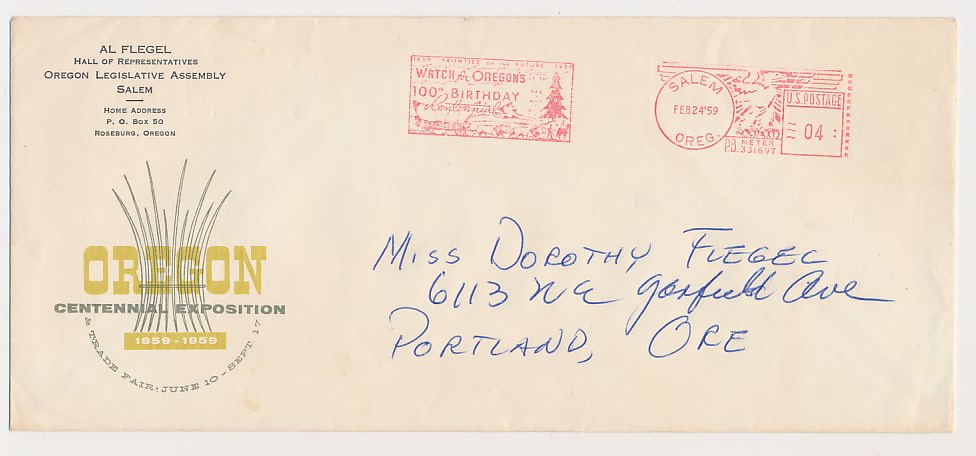 AL FLEGEL
HALL OF REPRESENTATIVES
OREGON LEGISLATIVE ASSEMBLY
SALEM
HOME ADDRESS
P. O. BOX 50
ROSEBURG, OREGON
1859 FRONTIER OF THE FUTURE 1959
WATCH for OREGON'S
100th BIRTHDAY
Centennial
SALEM
FEB 24 '59
OREG.
U.S. POSTAGE
04
P.B. METER
331697
OREGON
CENTENNIAL EXPOSITION
1859-1959
& TRADE FAIR: JUNE 10 - SEPT. 17
MISS DOROTHY FLEGEL
6113 NE Garfield Ave
PORTLAND, ORE